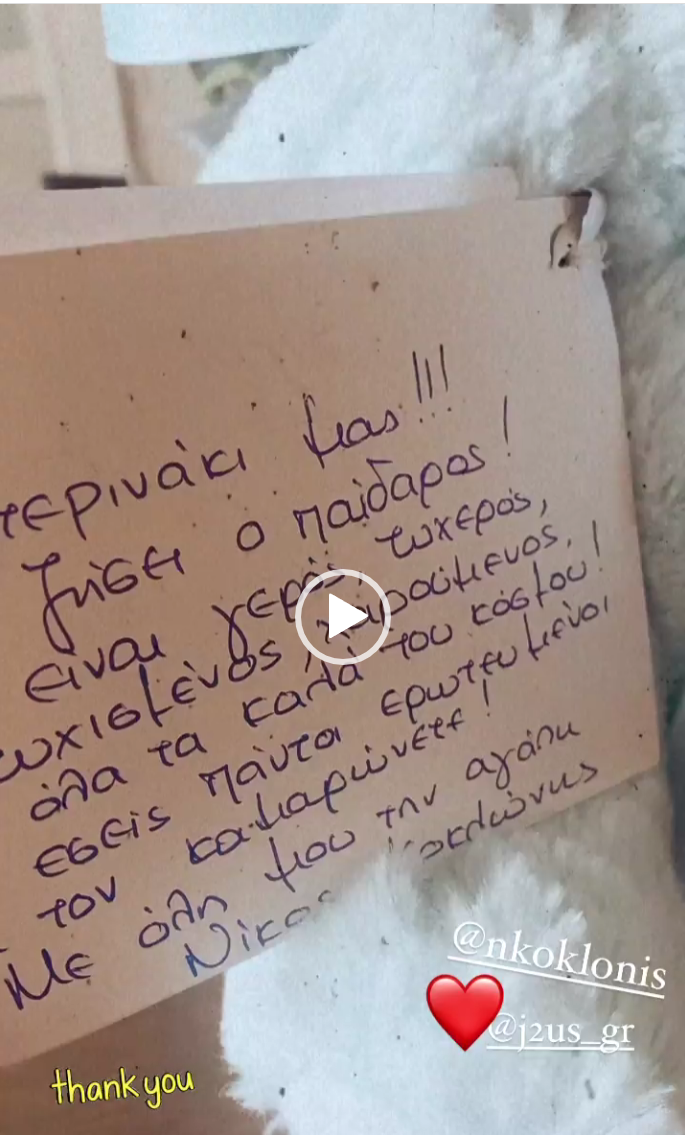 τερινάκι μας!!!
ζήσει ο παίδαρος!
είναι γερός, τυχερός,
τυχισμένος, χαρούμενος,
όλα τα καλά του κόσμου!
εσείς πάντα ερωτευμένοι
τον καμαρώνετε!
Με όλη μου την αγάπη
Νίκος Κοκλώνης
@nkoklonis
@j2us_gr
thank you